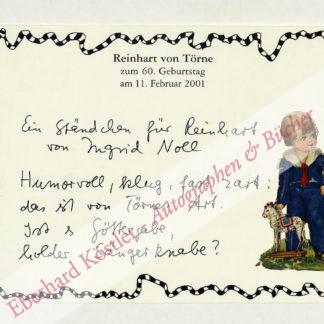 Reinhart von Törne
zum 60. Geburtstag
am 11. Februar 2001
Ein Ständchen für Reinhart
von Ingrid Noll
Humorvoll, klug, fast zart:
das ist von Törnes Art.
Ist's Göttergabe,
holder Sängerknabe?
Eberhard Köstler Autographen & Bücher